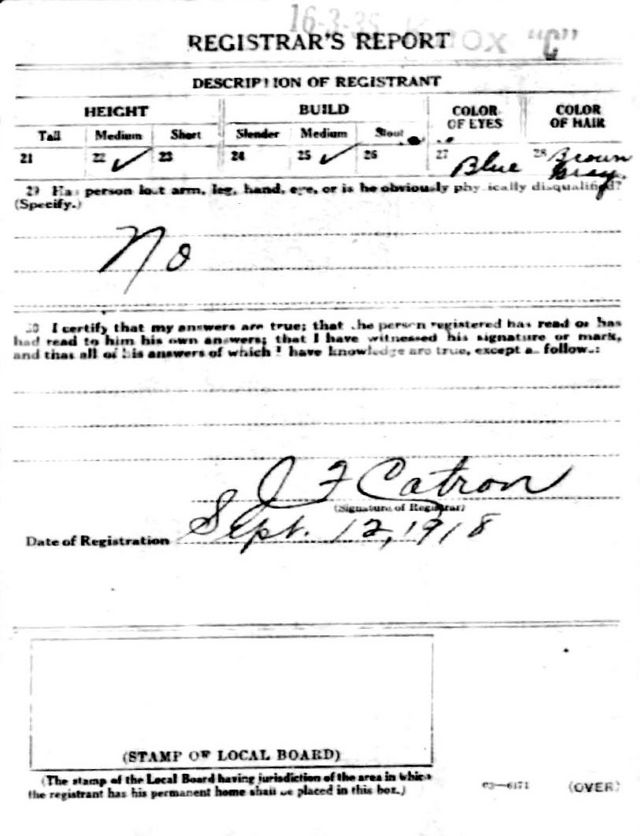 16-3-35 BOX "C"
REGISTRAR'S REPORT
DESCRIPTION OF REGISTRANT
HEIGHT BUILD COLOR OF EYES COLOR OF HAIR
Tall Medium Short Slender Medium Stout
21 22 ✓ 23 24 25 ✓ 26 27 Blue 28 Brown Gray
29 Has person lost arm, leg, hand, eye, or is he obviously physically disqualified?
(Specify.)
No
30 I certify that my answers are true; that the person registered has read or has
had read to him his own answers; that I have witnessed his signature or mark,
and that all of his answers of which I have knowledge are true, except as follows:
J F Catron
(Signature of Registrar)
Date of Registration Sept. 12, 1918
(STAMP OF LOCAL BOARD)
(The stamp of the Local Board having jurisdiction of the area in which
the registrant has his permanent home shall be placed in this box.)
03—6171 (OVER)